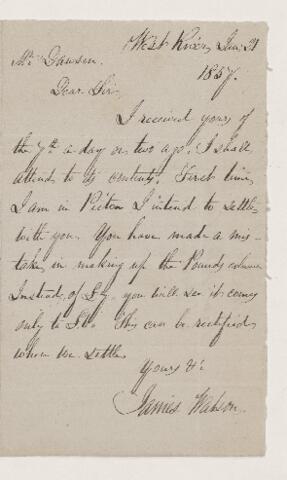 West River, Jan. 21
1857.
Mr Dawson.
Dear Sir,
I received yours of
the 7th a day or two ago. I shall
attend to its contents. First time
I am in Pictou I intend to settle
with you. You have made a mis-
take in making up the Pounds column
Instead of you will see it comes
only to This can be rectified
when we settle
Yours &c
James Watson.